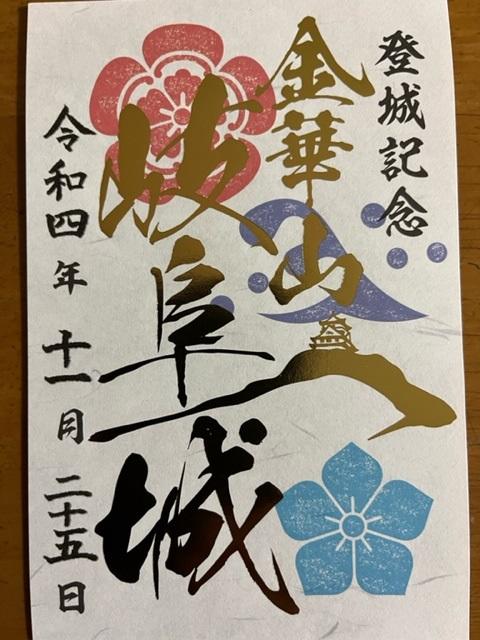 登城記念
金華山
岐阜城
令和四年 十一月 二十五日